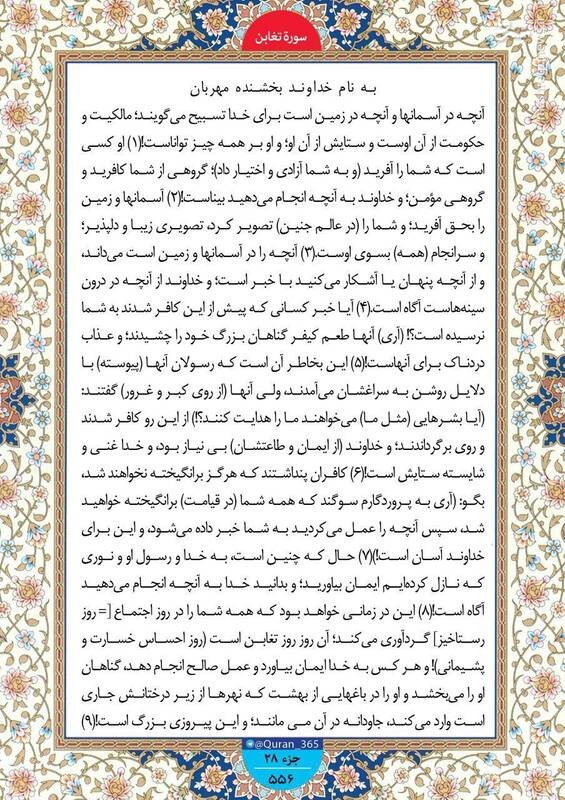 سورة تغابن
به نام خداوند بخشنده مهربان
آنچه در آسمانها و آنچه در زمین است برای خدا تسبیح می‌گویند؛ مالکیت و
حکومت از آن اوست و ستایش از آن او؛ و او بر همه چیز تواناست!(۱) او کسی
است که شما را آفرید (و به شما آزادی و اختیار داد)؛ گروهی از شما کافرید و
گروهی مؤمن؛ و خداوند به آنچه انجام می‌دهید بیناست!(۲) آسمانها و زمین
را بحق آفرید؛ و شما را (در عالم جنین) تصویر کرد، تصویری زیبا و دلپذیر؛
و سرانجام (همه) بسوی اوست.(۳) آنچه را در آسمانها و زمین است می‌داند،
و از آنچه پنهان یا آشکار می‌کنید با خبر است؛ و خداوند از آنچه در درون
سینه‌هاست آگاه است.(۴) آیا خبر کسانی که پیش از این کافر شدند به شما
نرسیده است؟! (آری) آنها طعم کیفر گناهان بزرگ خود را چشیدند؛ و عذاب
دردناک برای آنهاست!(۵) این بخاطر آن است که رسولان آنها (پیوسته) با
دلایل روشن به سراغشان می‌آمدند، ولی آنها (از روی کبر و غرور) گفتند:
(آیا بشرهایی (مثل ما) می‌خواهند ما را هدایت کنند؟!) از این رو کافر شدند
و روی برگرداندند؛ و خداوند (از ایمان و طاعتشان) بی نیاز بود، و خدا غنی و
شایسته ستایش است!(۶) کافران پنداشتند که هرگز برانگیخته نخواهند شد،
بگو: (آری به پروردگارم سوگند که همه شما (در قیامت) برانگیخته خواهید
شد، سپس آنچه را عمل می‌کردید به شما خبر داده می‌شود، و این برای
خداوند آسان است!)(۷) حال که چنین است، به خدا و رسول او و نوری
که نازل کرده‌ایم ایمان بیاورید؛ و بدانید خدا به آنچه انجام می‌دهید
آگاه است!(۸) این در زمانی خواهد بود که همه شما را در روز اجتماع [= روز
رستاخیز] گردآوری می‌کند؛ آن روز روز تغابن است (روز احساس خسارت و
پشیمانی)! و هر کس به خدا ایمان بیاورد و عمل صالح انجام دهد، گناهان
او را می‌بخشد و او را در باغهایی از بهشت که نهرها از زیر درختانش جاری
است وارد می‌کند، جاودانه در آن می مانند؛ و این پیروزی بزرگ است!(۹)
@Quran_365
جزء ۲۸
۵۵۶